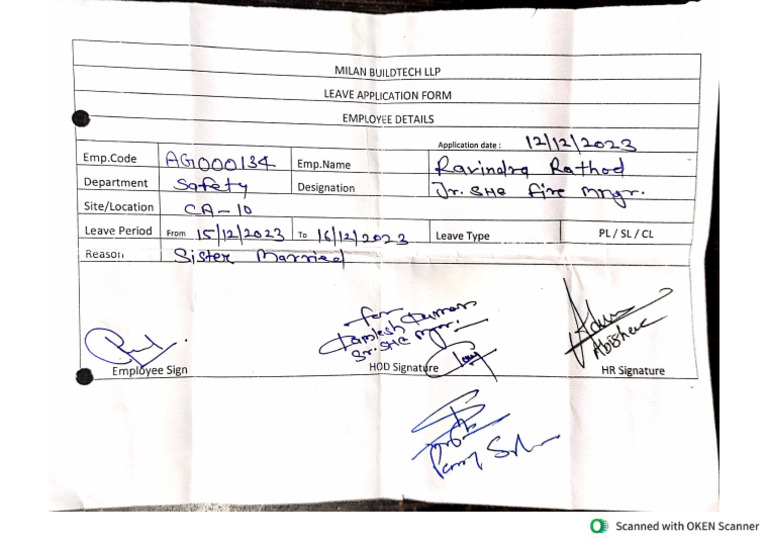 MILAN BUILDTECH LLP
LEAVE APPLICATION FORM
EMPLOYEE DETAILS
Application date : 12/12/2023
Emp.Code AG000134 Emp.Name Ravindra Rathod
Department Safety Designation Jr. SHE fire Mngr.
Site/Location CA-10
Leave Period From 15/12/2023 To 16/12/2023 Leave Type PL / SL / CL
Reason Sister Married
for
Kamlesh Kumar
Sr. SHE Mgr.
Abishek
Employee Sign HOD Signature HR Signature
Scanned with OKEN Scanner